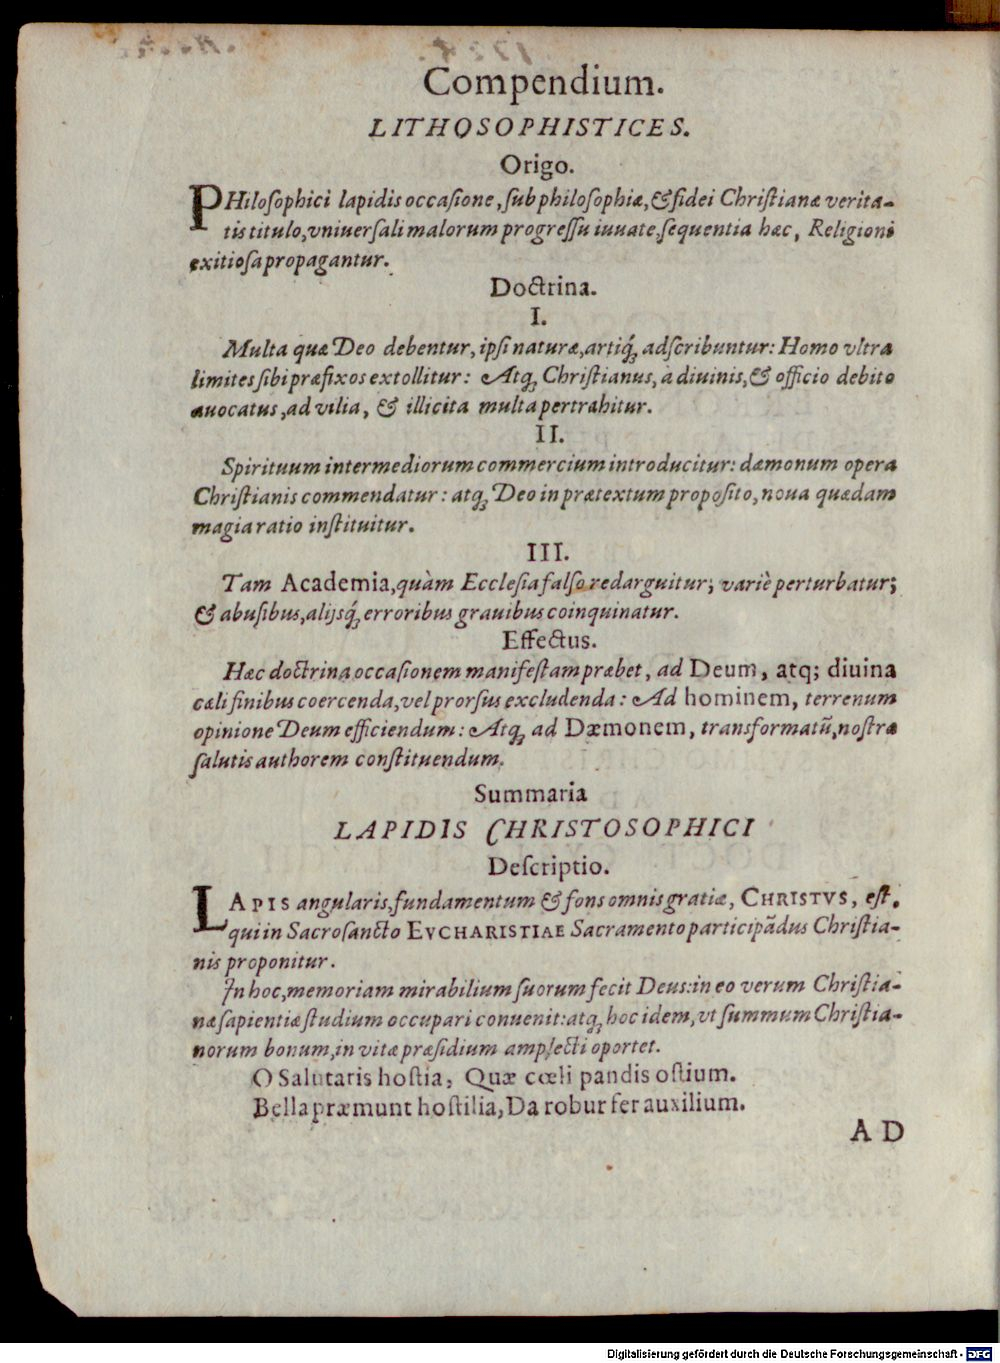 Compendium.
LITHOSOPHISTICES.
Origo.
PHiloſophici lapidis occaſione, ſub philoſophiæ, & fidei Chriſtianæ verita-
tis titulo, vniuerſali malorum progreſſu iuuate, ſequentia hæc, Religioni
exitioſa propagantur.
Doctrina.
I.
Multa quæ Deo debentur, ipſi naturæ, artiq́ꝫ adſcribuntur: Homo vltra
limites ſibi præfixos extollitur: Atqꝫ Chriſtianus, à diuinis, & officio debito
auocatus, ad vilia, & illicita multa pertrahitur.
II.
Spirituum intermediorum commercium introducitur: dæmonum opera
Chriſtianis commendatur: atqꝫ Deo in prætextum propoſito, noua quædam
magia ratio inſtituitur.
III.
Tam Academia, quàm Eccleſia falſo redarguitur; variè perturbatur;
& abuſibus, alijsq́ꝫ erroribus grauibus coinquinatur.
Effectus.
Hæc doctrina occaſionem manifeſtam præbet, ad Deum, atq; diuina
cæli finibus coercenda, vel prorſus excludenda: Ad hominem, terrenum
opinione Deum efficiendum: Atqꝫ ad Dæmonem, transformatũ, noſtræ
ſalutis authorem conſtituendum.
Summaria
LAPIDIS CHRISTOSOPHICI
Deſcriptio.
LAPIS angularis, fundamentum & fons omnis gratiæ, CHRISTVS, eſt.
qui in Sacroſancto EVCHARISTIAE Sacramento participãdus Chriſtia-
nis proponitur.
In hoc, memoriam mirabilium ſuorum fecit Deus: in eo verum Chriſtia-
næ ſapientiæ ſtudium occupari conuenit: atqꝫ hoc idem, vt ſummum Chriſtia-
norum bonum, in vitæ præſidium amplecti oportet.
O Salutaris hoſtia, Quæ cœli pandis oſtium.
Bella præmunt hoſtilia, Da robur fer auxilium.
AD
Digitalisierung gefördert durch die Deutsche Forschungsgemeinschaft - DFG